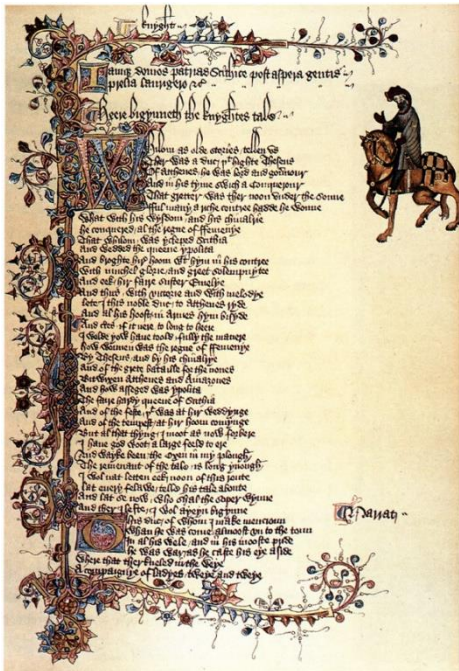 knyght
Iamque domos patrias Scithice post aspera gentis
prelia laurigero &c
Heere bigynneth the knyghtes tale
Whilom as olde stories tellen us
Ther was a duc þt highte Theseus
Of Atthenes he was lord and gouernour
And in his tyme swich a conquerour
That gretter was ther noon under the sonne
fful many a riche contree hadde he wonne
What with his wysdom and his chiualrie
he conquered al the regne of ffemenye
That whilom was ycleped Scithia
And wedded the queene ypolita
And broghte hir hoom wt hym in his contree
With muchel glorie and greet solempnytee
And eek hir faire suster Emelye
And thus with victorie and with melodye
lete I this noble duc to Atthenes ryde
And al his hoost in armes hym bisyde
And certes if it nere to long to heere
I wolde yow haue toold fully the manere
how wonnen was the regne of ffemenye
By Theseus and by his chiualrye
And of the grete bataille for the nones
Bitwixen Atthenes and Amazones
And how asseged was ypolita
The faire hardy queene of Scithia
And of the feste þt was at hir weddynge
And of the tempest at hir hoom comynge
But al that thyng I moot as now forbere
I haue god woot a large feeld to ere
And wayke been the oxen in my plough
The remenant of the tale is long ynough
I wol nat letten eek noon of this route
lat euery felawe telle his tale aboute
And lat se now who shal the soper wynne
And ther I lefte I wol ayeyn bigynne
Narrat
This duc of whom I make mencioun
Whan he was come almoost un to the toun
In al his wele and in his mooste pride
he was war as he caste his eye aside
Where that ther kneled in the weye
A compaignye of ladyes tweye and tweye